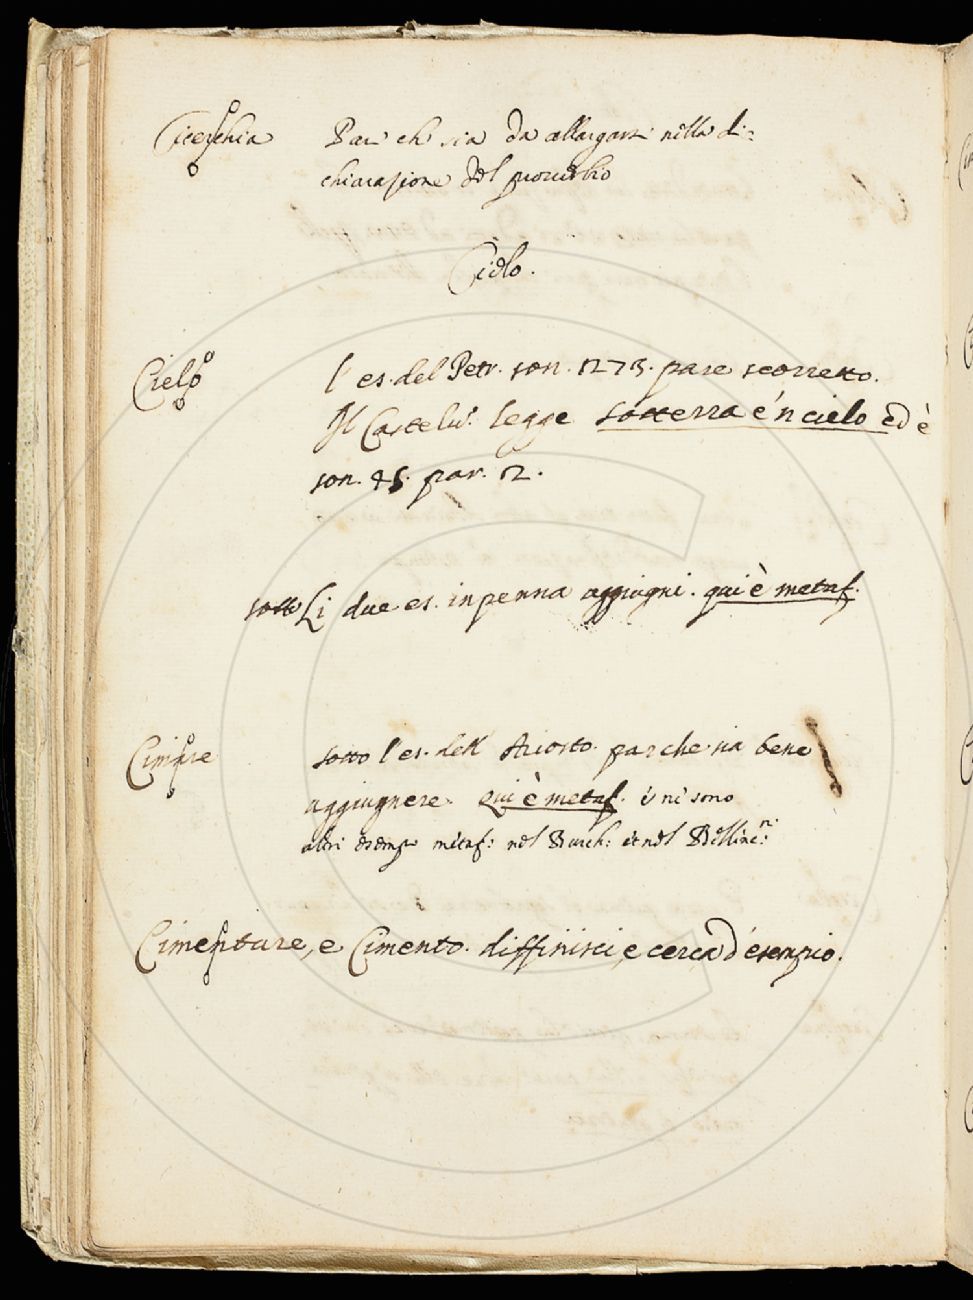 Cicerchia Par che sia da allargarsi nella di-
chiarazione del proverbio
Cielo.
Cielo l'es. del Petr. son. 1275. pare scorretto.
Il Castelv.º legge sotterra e 'n cielo ed è
son. 45. par. 2.
sotto Li due es. in penna aggiugni. qui è metaf.
sotto l'es. dell'Ariosto. par che sia bene
aggiugnere. Qui è metaf. e ne sono
altri esempi metaf: nel Burch: et nel Bellinc:ni
Cimentare, e Cimento. diffinisci, e cerca d'esempio.